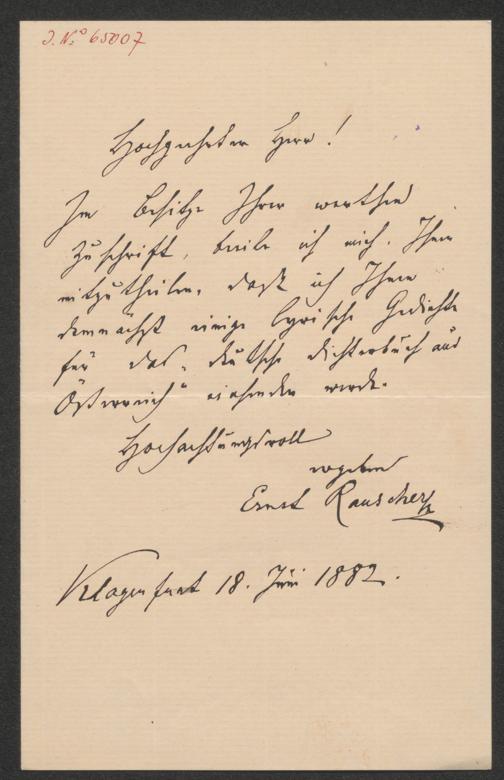 J. No 65007
Hochgeehrter Herr!
Im Besitze Ihrer werthen
Zuschrift, beeile ich mich, Ihnen
mitzutheilen, daß ich Ihnen
demnächst einige lyrische Gedichte
für das „deutsche Dichterbuch aus
Österreich" einsenden werde.
Hochachtungsvoll
ergeben
Ernst Rauscher
Klagenfurt 18. Juni 1882.